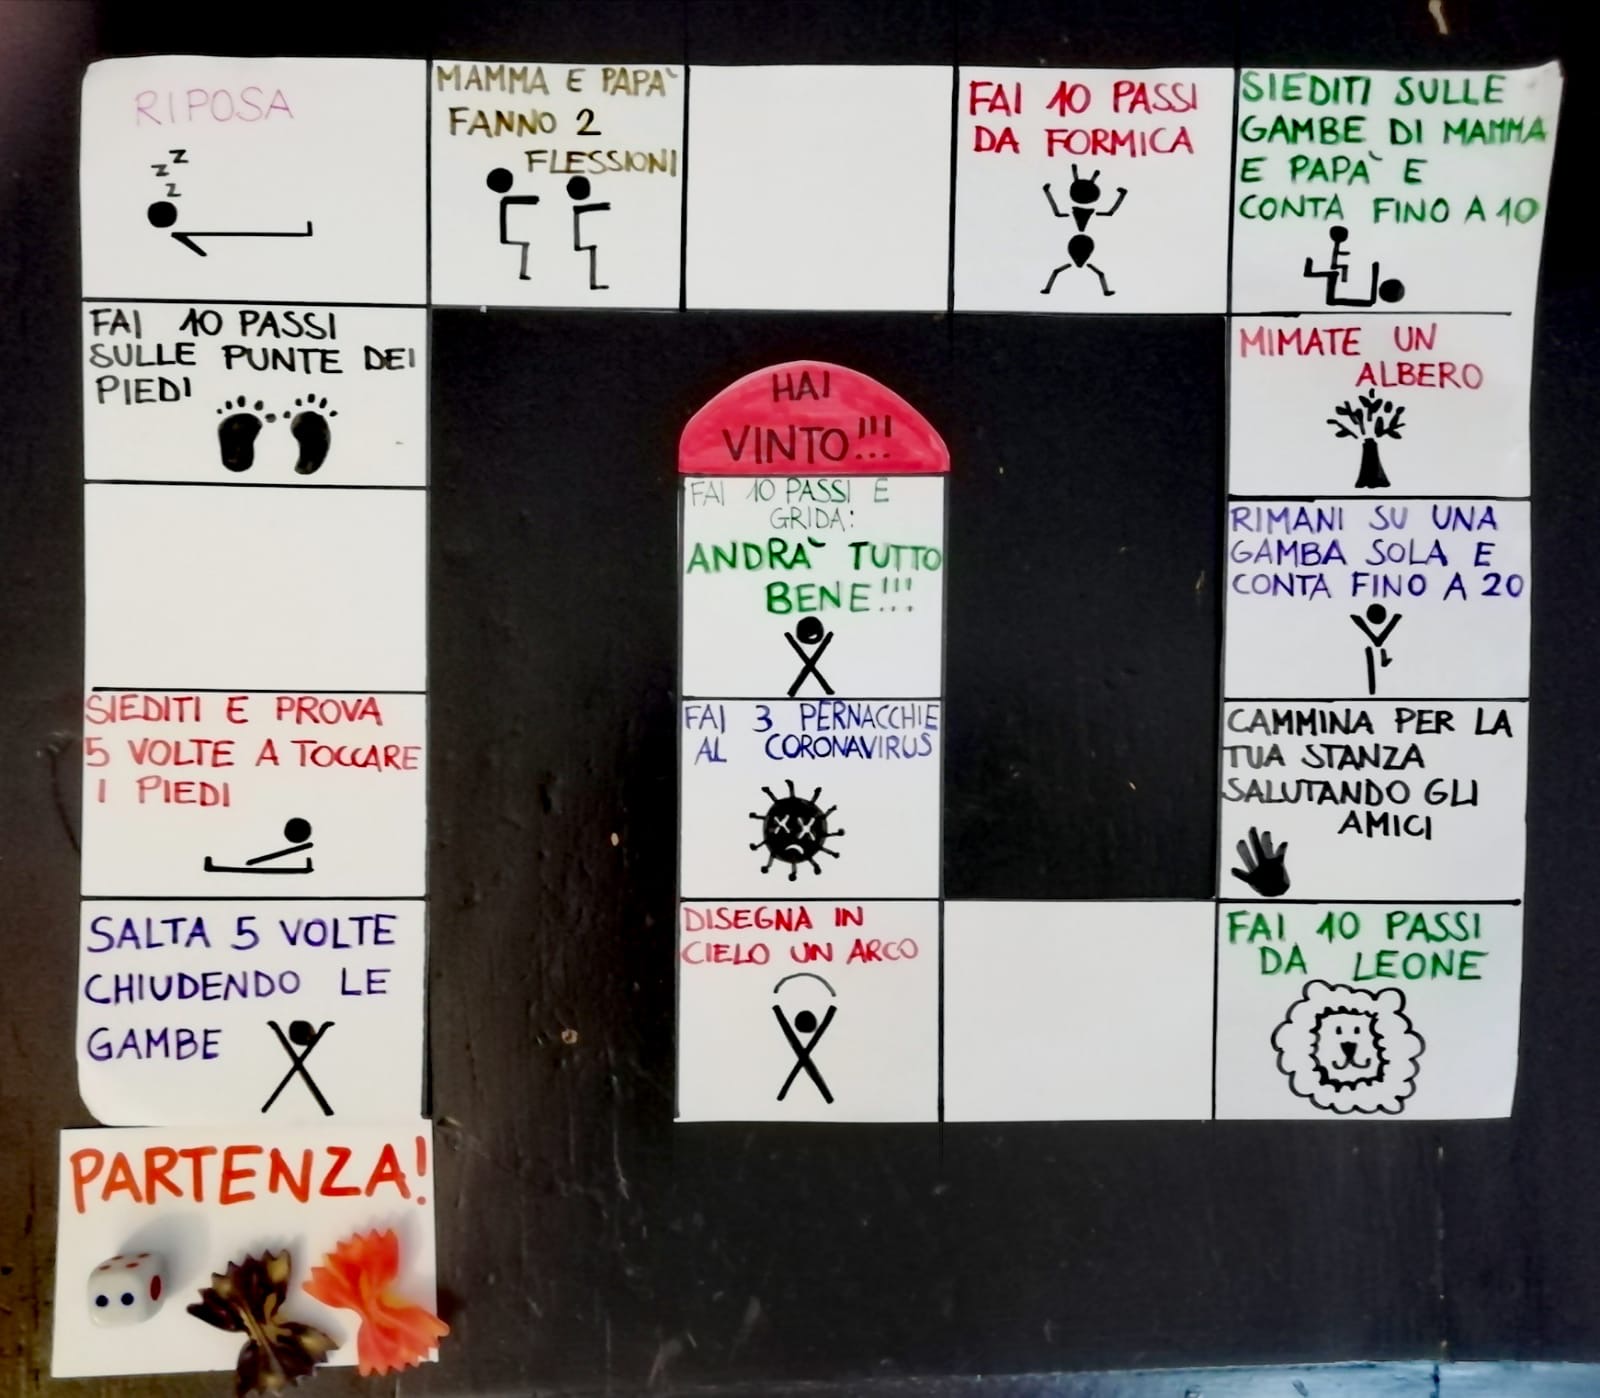 RIPOSA
z z
z
MAMMA E PAPA`
FANNO 2
FLESSIONI
FAI 10 PASSI
DA FORMICA
SIEDITI SULLE
GAMBE DI MAMMA
E PAPA` E
CONTA FINO A 10
FAI 10 PASSI
SULLE PUNTE DEI
PIEDI
HAI
VINTO!!!
MIMATE UN
ALBERO
FAI 10 PASSI E
GRIDA:
ANDRA` TUTTO
BENE!!!
RIMANI SU UNA
GAMBA SOLA E
CONTA FINO A 20
SIEDITI E PROVA
5 VOLTE A TOCCARE
I PIEDI
FAI 3 PERNACCHIE
AL CORONAVIRUS
CAMMINA PER LA
TUA STANZA
SALUTANDO GLI
AMICI
SALTA 5 VOLTE
CHIUDENDO LE
GAMBE
DISEGNA IN
CIELO UN ARCO
FAI 10 PASSI
DA LEONE
PARTENZA!